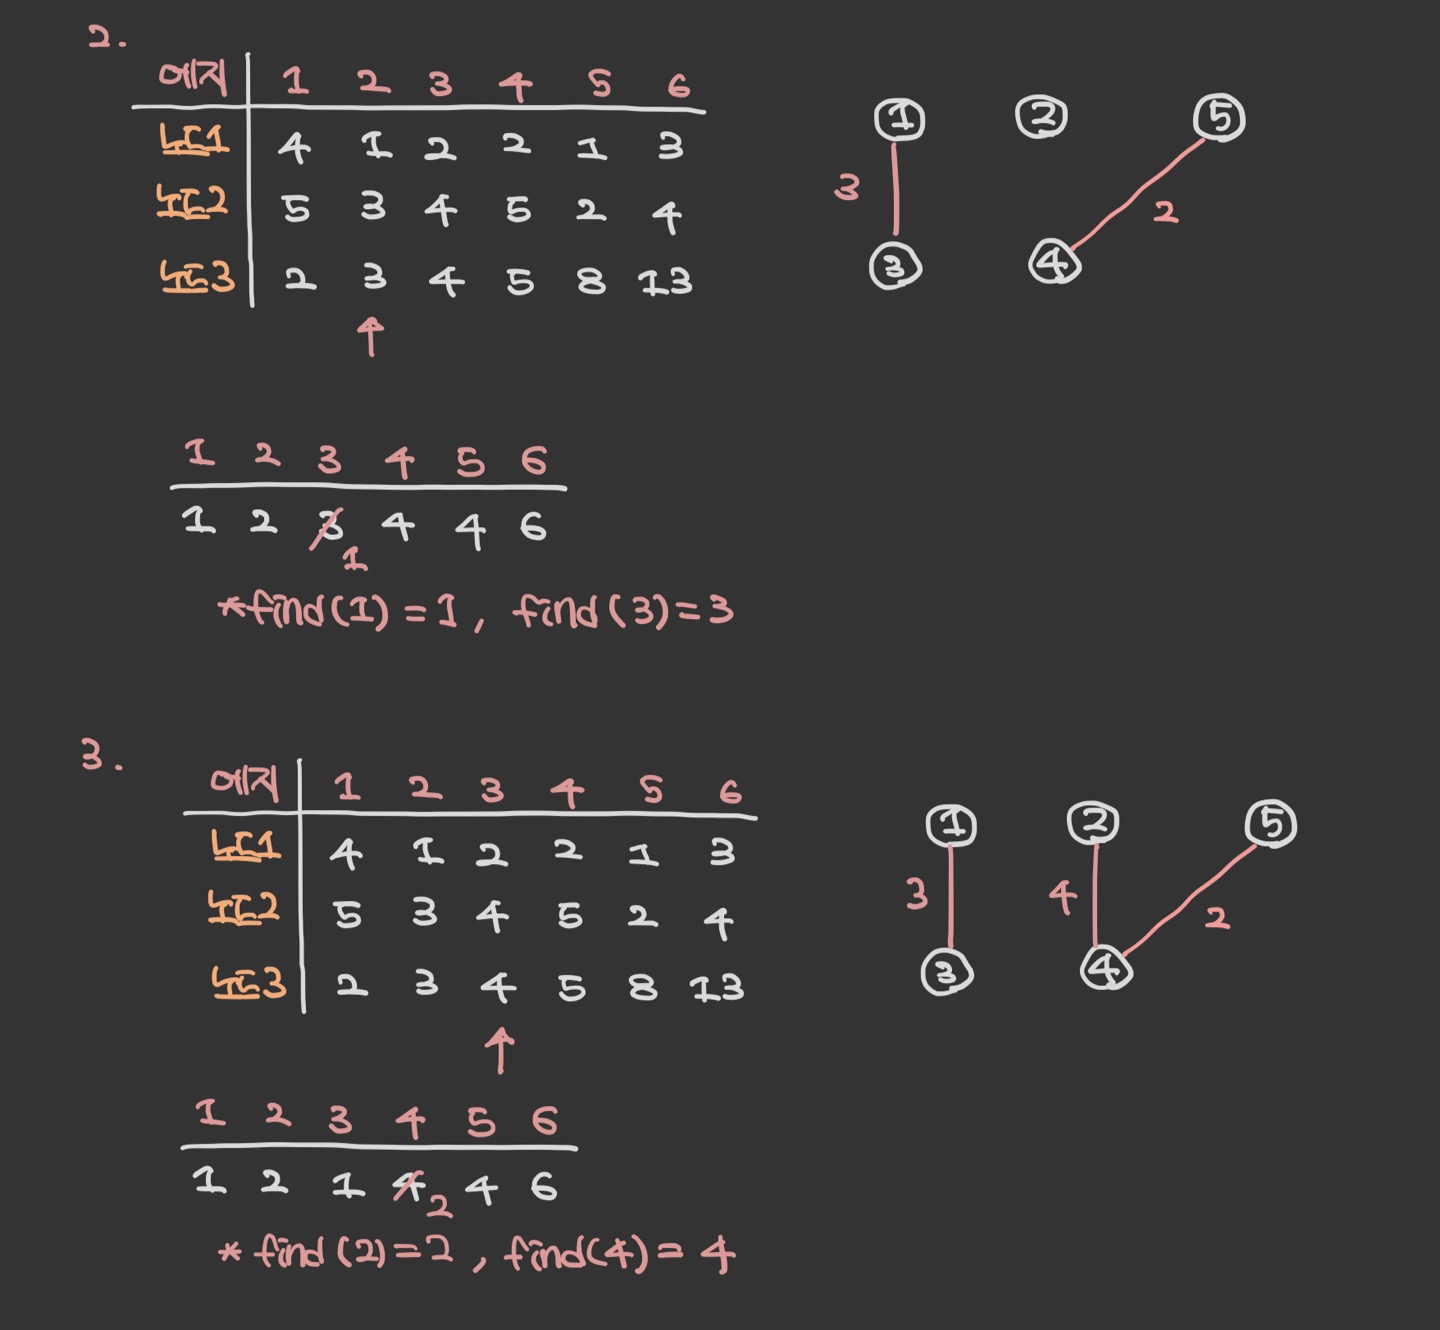 2.
에지 1 2 3 4 5 6
노드1 4 1 2 2 1 3
노드2 5 3 4 5 2 4
노드3 2 3 4 5 8 13
↑
1 2 5
3 2
3 4
1 2 3 4 5 6
1 2 3 4 4 6
1
*find(1)=1, find(3)=3
3.
에지 1 2 3 4 5 6
노드1 4 1 2 2 1 3
노드2 5 3 4 5 2 4
노드3 2 3 4 5 8 13
↑
1 2 5
3 4 2
3 4
1 2 3 4 5 6
1 2 1 4 4 6
2
* find(2)=2, find(4)=4